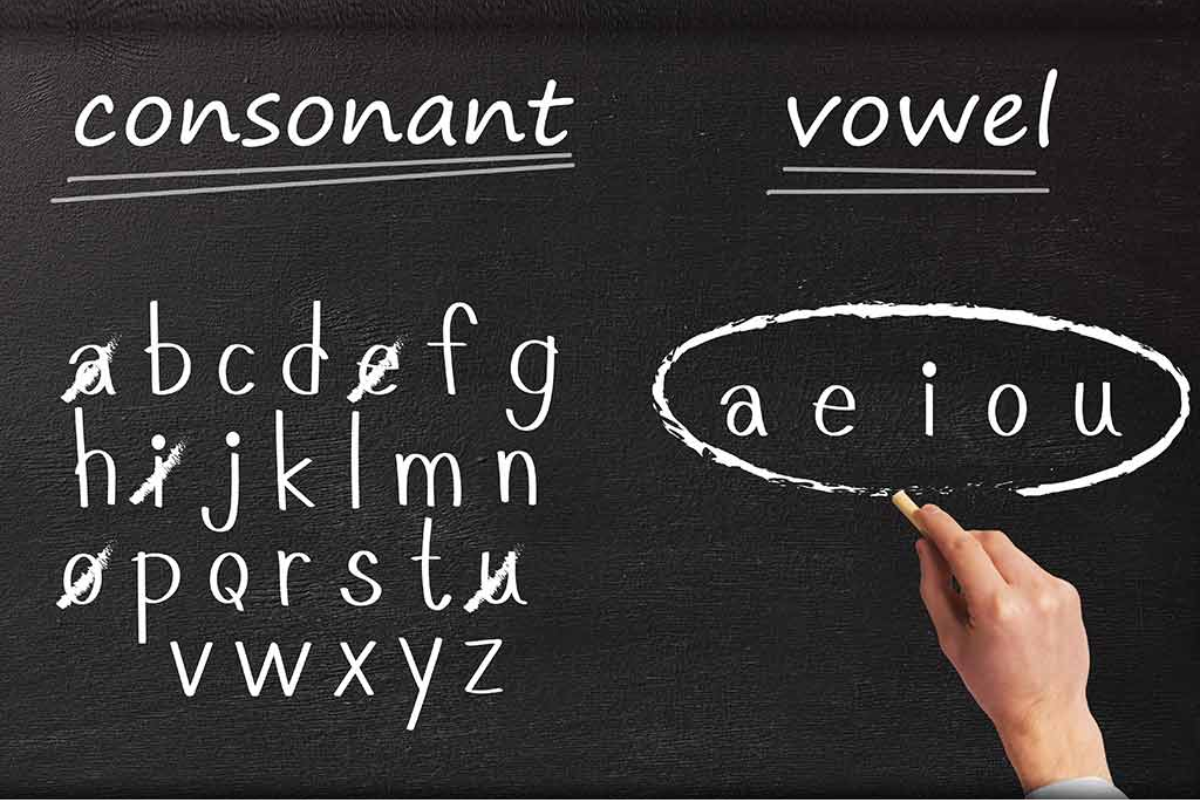 consonant
vowel
a b c d e f g
h i j k l m n
o p Q r s t u
v w x y z
a e i o u